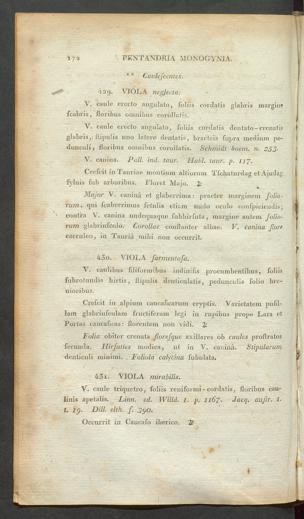 172 PENTANDRIA MONOGYNIA.
** Caulescentes.
429. VIOLA neglecta.
V. caule erecto angulato, foliis cordatis glabris margine
scabris, floribus omnibus corollatis.
V. caule erecto angulato, foliis cordatis dentato-crenatis
glabris, stipulis uno latere dentatis, bracteis supra medium pe-
dunculi, floribus omnibus corollatis. Schmidt boem. n. 253.
V. canina. Pall. ind. taur. Habl. taur. p. 117.
Crescit in Tauriae montium altiorum Tschaturdag et Ajudag
sylvis sub arboribus. Floret Majo. ♃
Major V. caninâ et glaberrima: praeter marginem folio-
rum, qui scaberrimus setulis etiam nudo oculo conspiciendis;
contra V. canina undequaque subhirsuta, margine autem folio-
rum glabriusculo. Corollae constanter albae. V. canina flore
caeruleo, in Tauriâ mihi non occurrit.
430. VIOLA sarmentosa.
V. caulibus filiformibus indivisis procumbentibus, foliis
subrotundis hirtis, stipulis denticulatis, pedunculis folio bre-
vioribus.
Crescit in alpium caucasicarum cryptis. Varietatem pusil-
lam glabriusculam fructiferam legi in rupibus prope Lars et
Portas caucaseas: florentem non vidi. ♃
Folia obiter crenata floresque axillares ob caules prostratos
secunda. Hirsuties modica, ut in V. caninâ. Stipularum
denticuli minimi. Foliola calycina subulata.
431. VIOLA mirabilis.
V. caule triquetro, foliis reniformi-cordatis, floribus cau-
linis apetalis. Linn. ed. Willd. 1. p. 1167. Jacq. austr. 1.
t. 19. Dill. elth. f. 390.
Occurrit in Caucaso iberico. ♃